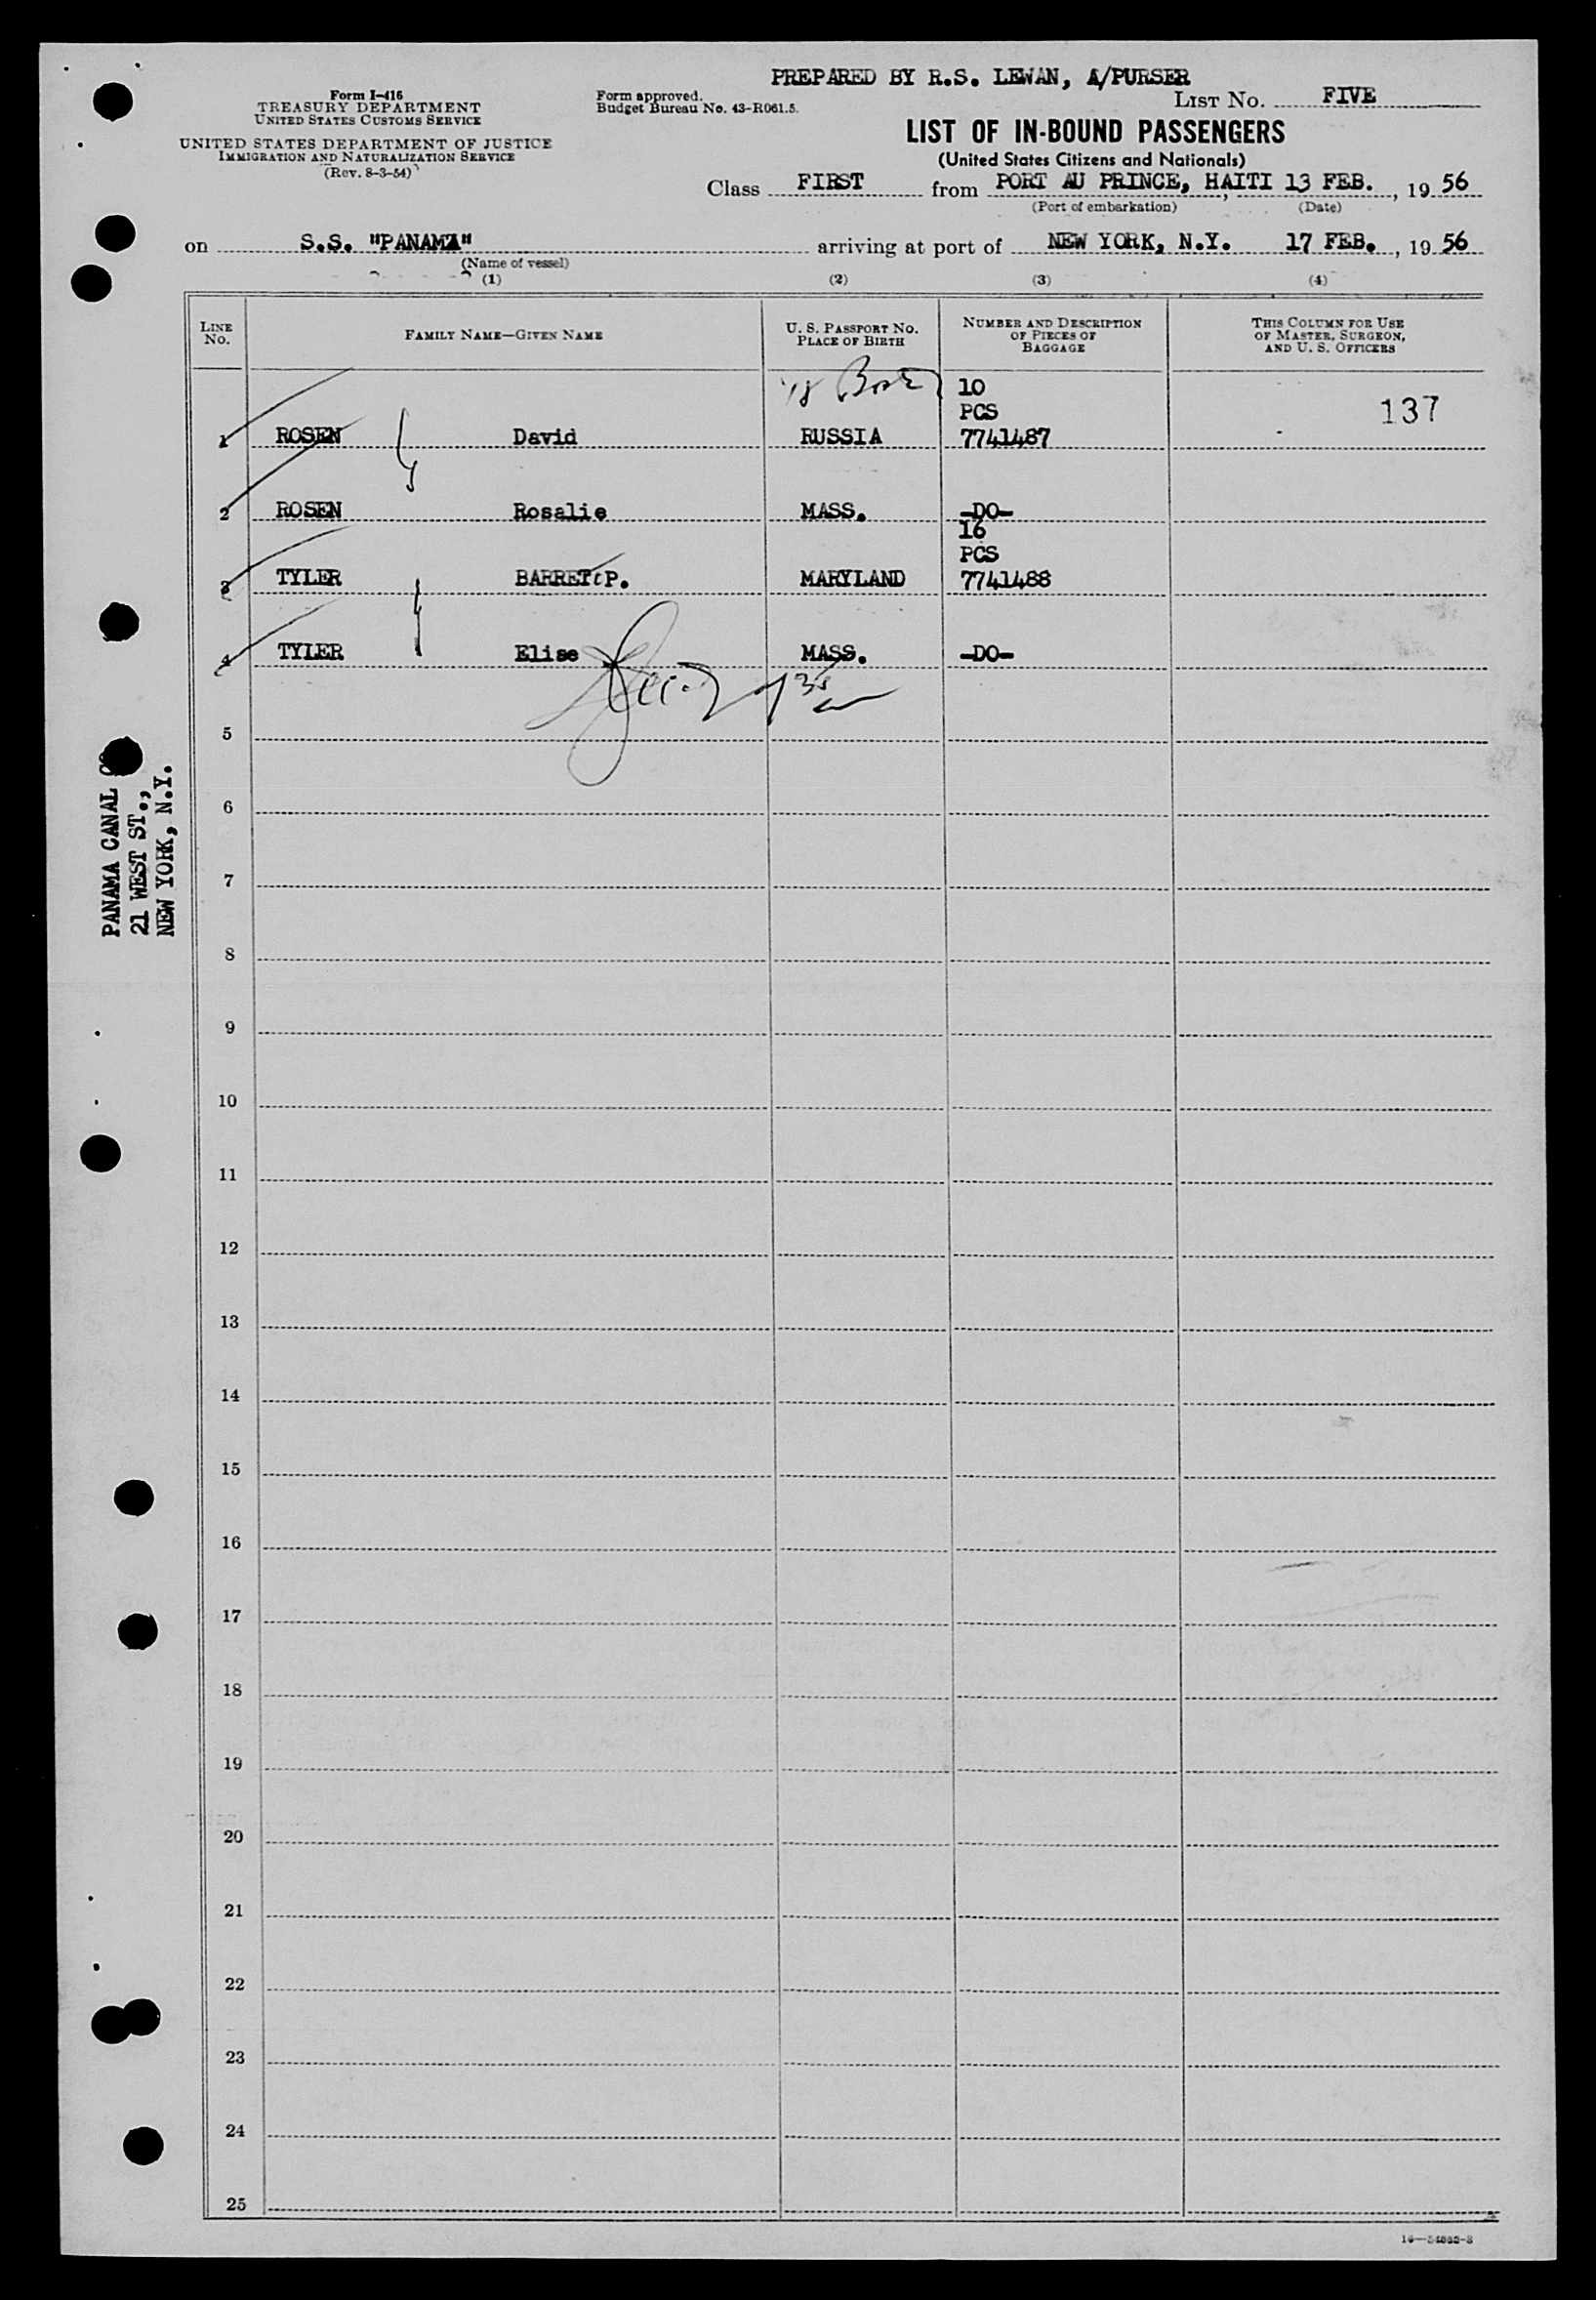 PREPARED BY R.S. LEWAN, A/PURSER
Form I-416
TREASURY DEPARTMENT
UNITED STATES CUSTOMS SERVICE
UNITED STATES DEPARTMENT OF JUSTICE
IMMIGRATION AND NATURALIZATION SERVICE
(Rev. 8-3-54)
Form approved.
Budget Bureau No. 43-R061.5.
LIST No. FIVE
LIST OF IN-BOUND PASSENGERS
(United States Citizens and Nationals)
Class FIRST from PORT AU PRINCE, HAITI, 13 FEB., 19 56
(Port of embarkation) (Date)
on S.S. "PANAMA" arriving at port of NEW YORK, N.Y. 17 FEB., 19 56
(Name of vessel)
(1) (2) (3) (4)
LINE No.
FAMILY NAME—GIVEN NAME
U. S. PASSPORT No.
PLACE OF BIRTH
NUMBER AND DESCRIPTION
OF PIECES OF
BAGGAGE
THIS COLUMN FOR USE
OF MASTER, SURGEON,
AND U. S. OFFICERS
10
PCS
137
1 ROSEN David RUSSIA 7741487
2 ROSEN Rosalie MASS. -DO-
16
PCS
3 TYLER BARRETT P. MARYLAND 7741488
4 TYLER Elise MASS. -DO-
5
6
7
8
9
10
11
12
13
14
15
16
17
18
19
20
21
22
23
24
25
PANAMA CANAL
21 WEST ST.,
NEW YORK, N.Y.